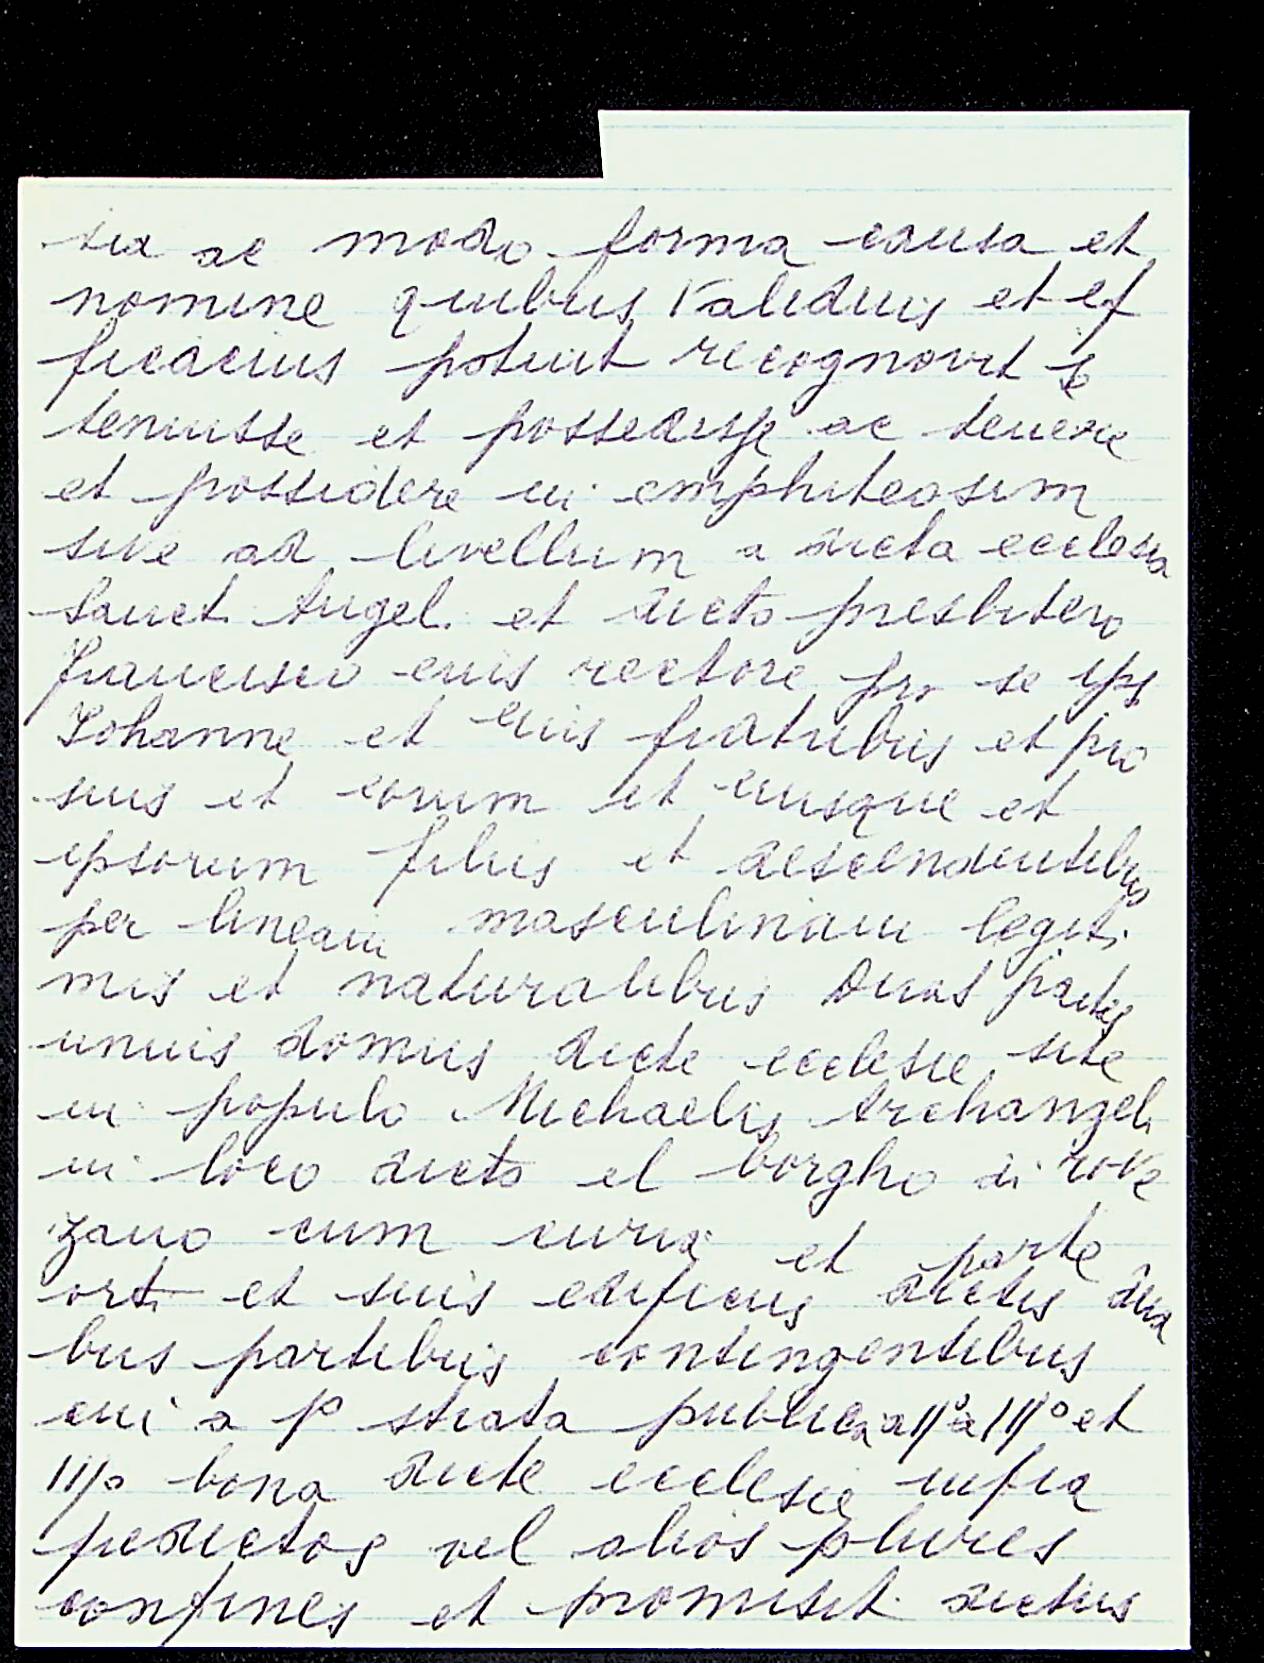 sua ac modo forma causa et
nomine quibus Validius et ef
ficacius potuit recognovit se
tenuisse et possedisse ac tenere
et possidere in emphiteosim
sive ad livellum a dicta ecclesia
Sancti Angeli et dicto presbitero
francisco eius rectore pro se ipso
Johanne et eius fratribus et pro
suis et eorum et cuiusque et
ipsorum filiis et descendentibus
per lineam masculinam legiti
mis et naturalibus Duas partes
unius domus dicte ecclesie site
in populo Michaelis Archangeli
in loco dicto el borgho di rove
zano cum curia et parte
orti et suis edificiis dictis dua
bus partibus contingentibus
cui a p° strata publica a II° a III° et
IIII° bona dicte ecclesie infra
predictos vel alios plures
confines et promisit dictus